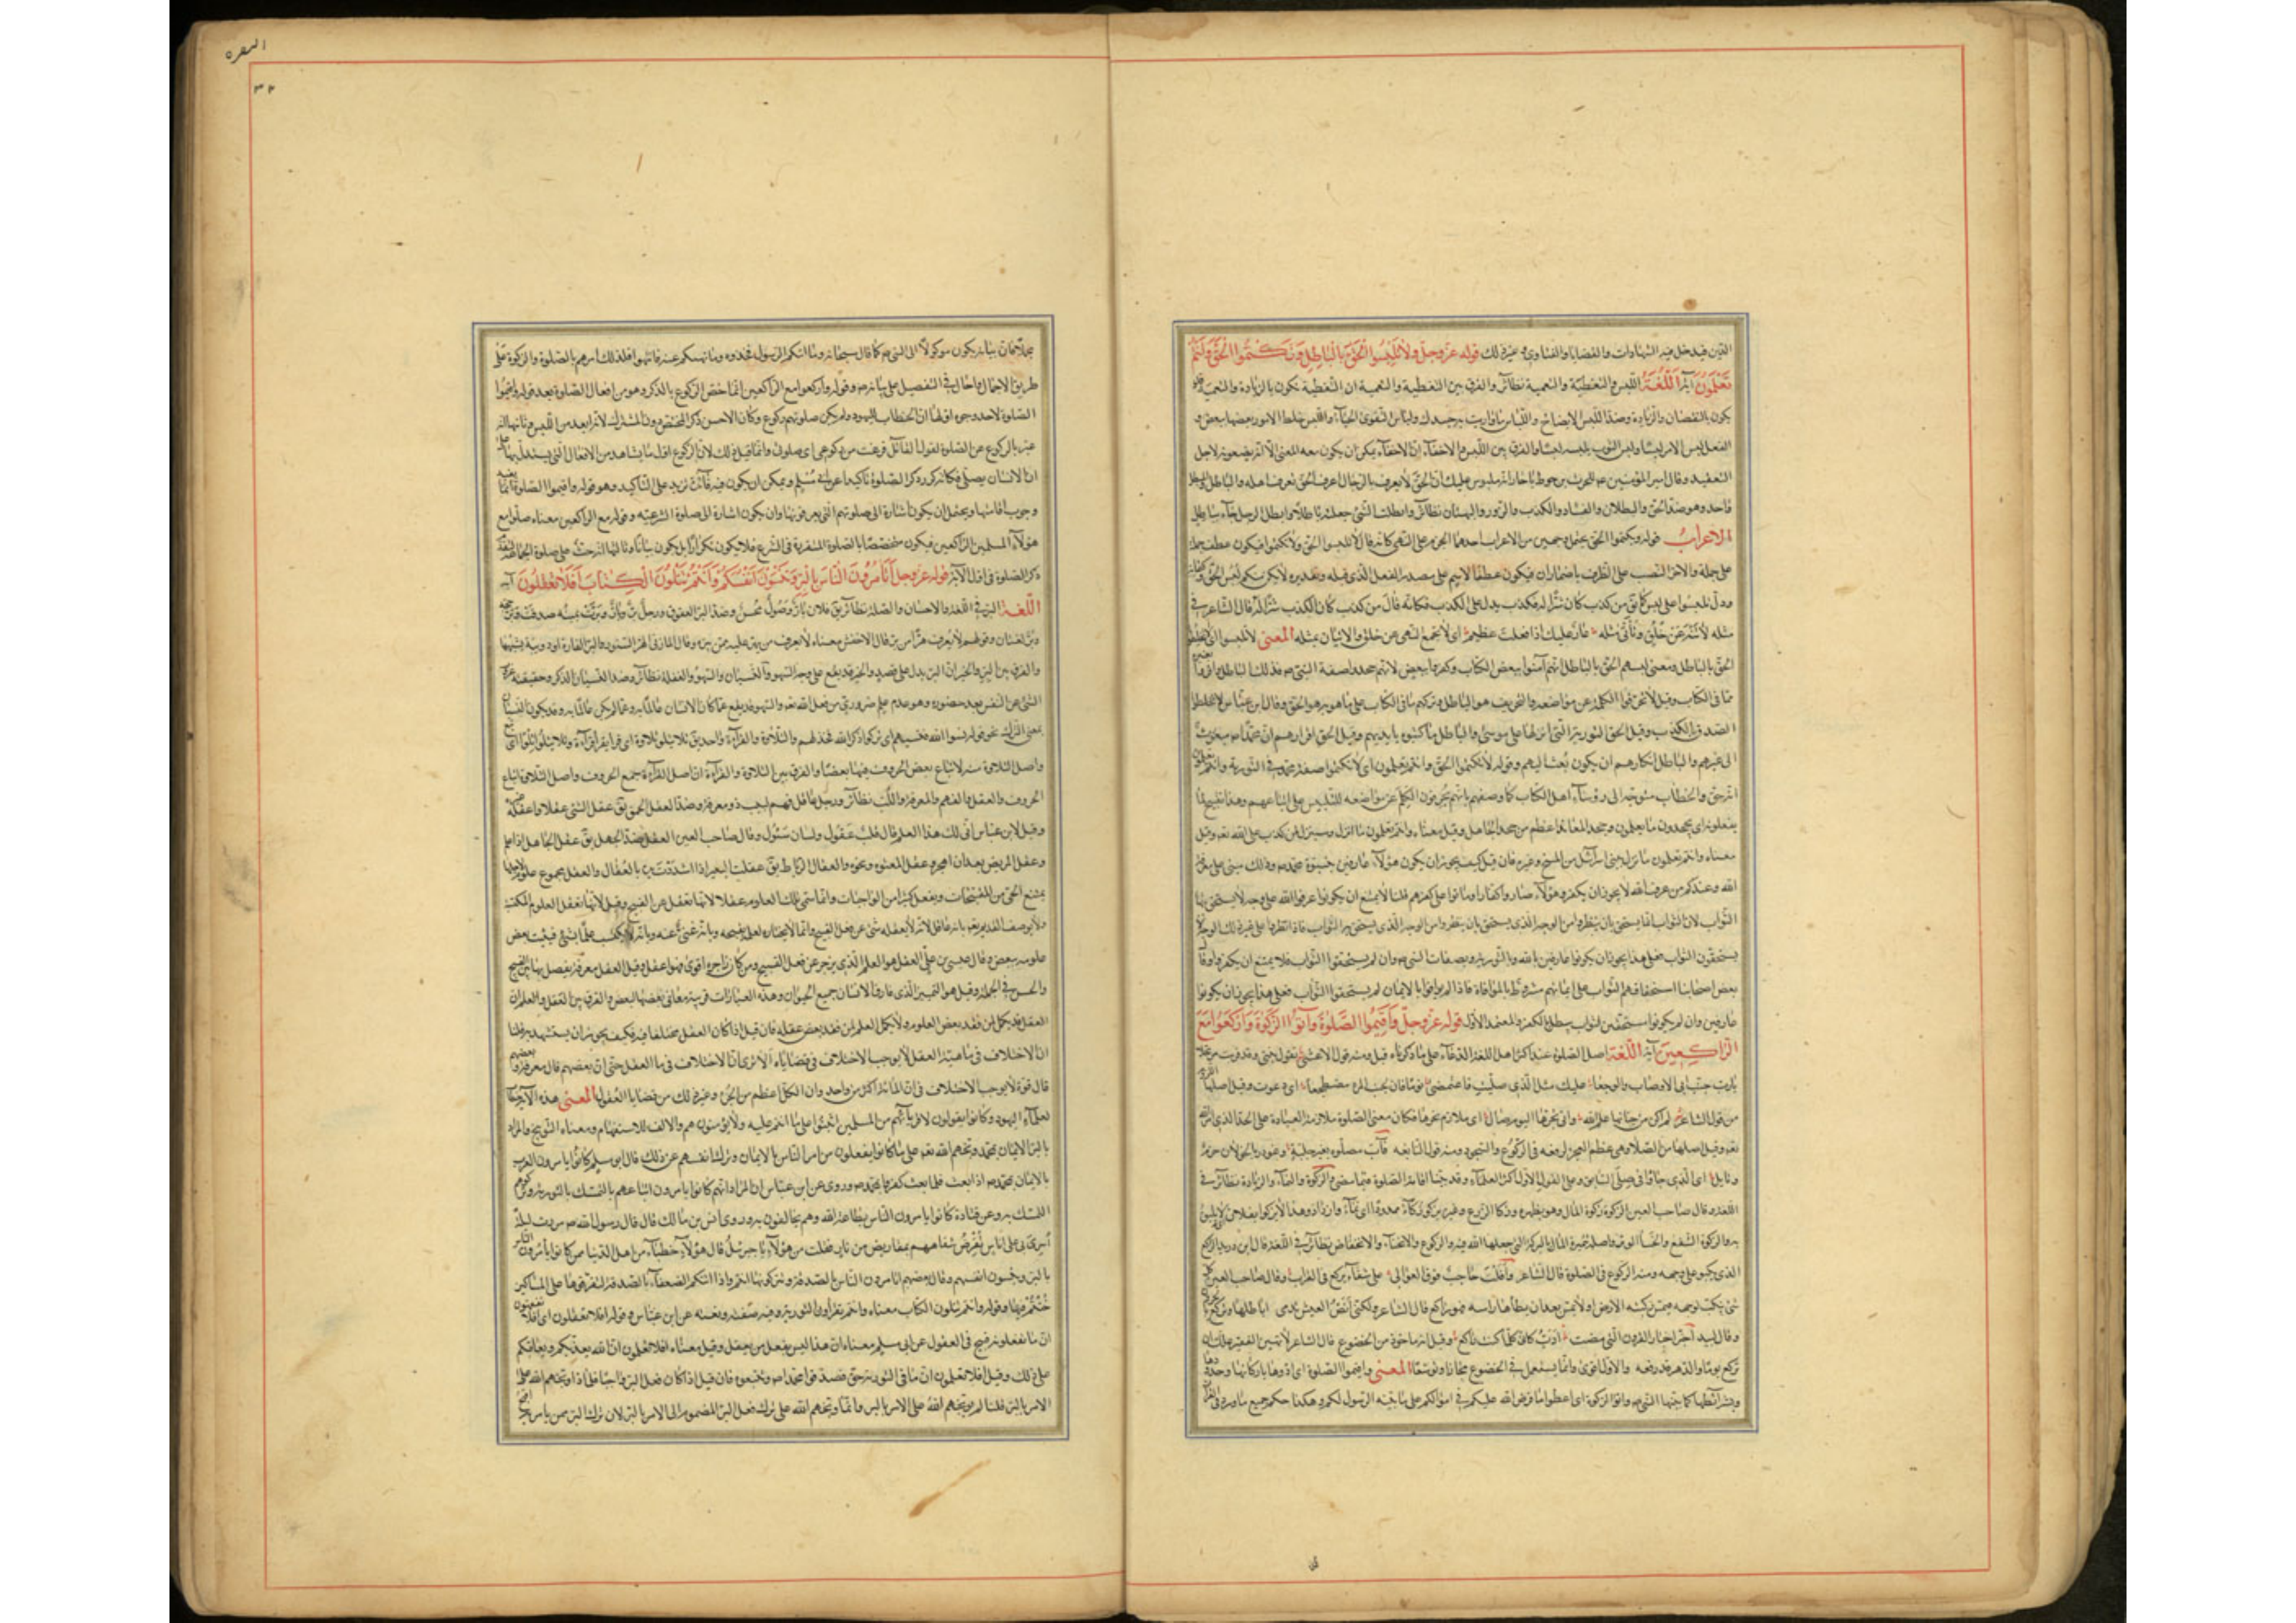 الدين فيدخل فيه الشهادات والقضايا والفتاوى وغير ذلك قوله عز وجل وَلَا تَلْبِسُوا الْحَقَّ بِالْبَاطِلِ وَتَكْتُمُوا الْحَقَّ وَأَنْتُمْ
تَعْلَمُونَ آية اَللُّغَةُ اللبس والتغطية والتعمية نظائر والفرق بين التغطية والتعمية ان التغطية تكون بالزيادة والتعمية
يكون بالنقصان والزيادة وضد اللبس الايضاح واللباس ما واريت به جسدك ولباس التقوى الحياء واللبس خلط الامور بعضها ببعض و
الفعل لبس الامر يلبس لبسا ولبس الثوب يلبسه لبسا والفرق بين اللبس والاخفاء ان الاخفاء يمكن ان يكون معه المعنى الا انه لاجل
التعقيد وقال امير المؤمنين للحرث بن حوط يا حار انه ملبوس عليك ان الحق لا يعرف بالرجال اعرف الحق تعرف اهله والباطل
واحد وهو ضد الحق والبطلان والفساد والكذب والزور والبهتان نظائر وابطلت الشئ جعلته باطلا وابطل الرجل جاء بباطل
الاعراب قوله وتكتموا الحق يحتمل وجهين من الاعراب احدهما الجزم على النهى كانه قال لا تلبسوا الحق ولا تكتموا فيكون عطف جملة
على جملة والاخر النصب على الظرف باضمار ان فيكون عطف الاسم على مصدر الفعل الذى قبله وتقديره لا يكن منكم لبس الحق
ودل تلبسوا على لبس كما يق من كذب كان شرا له فكذب يدل على الكذب فكانه قال من كذب كان الكذب شرا له قال الشاعر فى
مثله لا تنه عن خلق وتأتى مثله عار عليك اذا فعلت عظيم اى لا تجمع النهى عن خلق والاتيان بمثله المعنى لا تلبسوا اى لا تخلطوا
الحق بالباطل ومعنى لبسهم الحق بالباطل انهم آمنوا ببعض الكتاب وكفروا ببعض لانهم جحدوا صفة النبى ص فذلك الباطل
مما فى الكتاب وقيل لا تحرفوا الكلم عن مواضعه فالتحريف هو الباطل وتركهم ما فى الكتاب على ما هو به هو الحق وقال ابن عباس لا تخلطوا
الصدق بالكذب وقيل الحق التورية التى انزلها على موسى والباطل ما كتبوه بايديهم وقيل الحق اقرارهم ان محمدا ص مبعوث
الى غيرهم والباطل انكارهم ان يكون بعث اليهم وقوله لا تكتموا الحق وانتم تعلمون اى لا تكتموا صفة محمد فى التورية وانتم تعلمون
انه حق والخطاب متوجه الى رؤساء اهل الكتاب كما وصفهم بانهم يحرفون الكلم عن مواضعه للتلبيس على اتباعهم وهذا تقبيح لما
يفعلونه اى يجحدون ما يعلمون وجحد المعاند اعظم من جحد الجاهل وقيل معناه وانتم تعلمون ما انزل وسينزل لمن كذب على الله تعم وقيل
معناه وانتم تعلمون ما نزل ببنى اسرآئيل من المسخ وغيره فان قيل كيف يجوز ان يكون هؤلاء عارفين بنبوة محمد ص وذلك مبنى على معرفة
الله وعندكم من عرف الله لا يجوز ان يكفر وهؤلاء صاروا كفارا وماتوا على كفرهم قلنا لا يمتنع ان يكونوا عرفوا الله على وجه لا يستحق بها
الثواب لان الثواب انما يستحق بان ينظروا من الوجه الذى يستحق به الثواب فاذا نظروا على غير ذلك الوجه لا
يستحقون الثواب فعلى هذا يجوز ان يكونوا عارفين بالله وبالتورية وبصفات النبى ص وان لم يستحقوا الثواب فلا يمتنع ان يكفروا وقال
بعض اصحابنا استحقاقهم الثواب على ايمانهم مشروط بالموافاة فاذا لم يوافوا بالايمان لم يستحقوا الثواب فعلى هذا يجوز ان يكونوا
عارفين وان لم يكونوا مستحقين لثواب يبطل بالكفر والمعتمد الاول قوله عز وجل وَأَقِيمُوا الصَّلٰوةَ وَآتُوا الزَّكٰوةَ وَارْكَعُوا مَعَ
الرَّاكِعِينَ آية اللُّغَةُ اصل الصلوة عند اكثر اهل اللغة الدعاء على ما ذكرناه قبل ومنه قول الاعشى تقول بنتى وقد قربت مرتحلا
يا رب جنب ابى الاوصاب والوجعا عليك مثل الذى صليت فاغتمضى نوما فان لجنب المرء مضطجعا اى دعوت وقيل اصلها
من قول الشاعر لم اكن من جناتها علم الله وانى بحرها اليوم صال اى ملازم لحرها فكان معنى الصلوة ملازمة العبادة على الحد الذى امر الله
تعم وقيل اصلها من الصلا وهى عظم العجز لرفعه فى الركوع والسجود ومنه قول النابغة فآب مصلوه بعين جلية وغودر بالجولان حزم
ونايل اى الذى جاؤا فى صلى السابق وعلى القول الاول اكثر العلماء وقد بينا اقامة الصلوة فيما مضى والزكوة والنماء والزيادة نظائر فى
اللغة وقال صاحب العين الزكوة زكوة المال وهو تطهيره وزكا الزرع وغيره يزكو زكاء ممدودا اى نما وازداد وهذا لا يزكو بفلان اى لا يليق
به والزكوة الشفع والخسا الوتر واصله تثمير المال بالبركة التى يجعلها الله فيه والركوع والانحناء والانخفاض نظائر فى اللغة قال ابن دريد الراكع
الذى يكبو على وجهه ومنه الركوع فى الصلوة قال الشاعر وافلت حاجب فوق العوالى على شقآء تركع فى الظراب وقال صاحب العين كل
شئ ينكب لوجهه فتمس ركبته الارض او لا تمس بعد ان يطأطأ راسه فهو راكع قال الشاعر ولكنى انص العيس تدمى اياطلها وتركع
وقال لبيد اخبر اخبار القرون التى مضت ادب كانى كلما قمت راكع وقيل انه ماخوذ من الخضوع قال الشاعر لا تهين الفقير علك ان
تركع يوما والدهر قد رفعه والاول اقوى وانما يستعمل فى الخضوع مجازا وتوسعا المعنى واقيموا الصلوة اى ادوها باركانها وحدودها
وشرائطها كما بينها النبى ص وآتوا الزكوة اى اعطوا ما فرض الله عليكم فى اموالكم على ما بينه الرسول لكم وهكذا حكم جميع ما ورد فى القرآن
البقره
٣٢
مجملا فان بيانه يكون موكولا الى النبى ص كما قال سبحانه وما آتيكم الرسول فخذوه وما نهيكم عنه فانتهوا فلذلك امرهم بالصلوة والزكوة على
طريق الاجمال واحال فى التفصيل على بيانه ص وقوله واركعوا مع الراكعين انما خص الركوع بالذكر وهو من افعال الصلوة بعد قوله واقيموا
الصلوة لاحد وجوه اولها ان الخطاب لليهود ولم يكن صلوتهم ركوع وكان الاحسن ذكر المختص دون المشترك لانه ابعد من اللبس وثانيها انه
عبر بالركوع عن الصلوة لقول القائل فرغت من ركوعى اى صلوتى وانما قيل ذلك لان الركوع اول ما يشاهد من الافعال التى يستدل بها على
ان الانسان يصلى فكانه كرر ذكر الصلوة تاكيدا عن ابى مسلم ويمكن ان يكون فيه فائدة تزيد على التاكيد وهو ان قوله واقيموا الصلوة انما يفيد
وجوب اقامتها ويحتمل ان يكون اشارة الى صلوتهم التى يعرفونها وان يكون اشارة الى صلوة الشرعية وقوله مع الراكعين معناه صلوا مع
هؤلاء المسلمين الراكعين فيكون متخصصا بالصلوة المتقررة فى الشرع فلا يكون تكرارا بل يكون بيانا وثالثها انه حث على صلوة الجماعة
ذكر الصلوة فى اول الآية قوله عز وجل أَتَأْمُرُونَ النَّاسَ بِالْبِرِّ وَتَنْسَوْنَ أَنْفُسَكُمْ وَأَنْتُمْ تَتْلُونَ الْكِتَابَ أَفَلَا تَعْقِلُونَ آية
اللُّغَةُ البر فى اللغة والاحسان والصلة نظائر يق فلان بار وصول محسن وضد البر العقوق ورجل بر وبار وبرت يمينه صدقت وبر حجه
وبر لغتان وقولهم لا يعرف هرا من بر قال الاخفش معناه لا يعرف من يهر عليه ممن يبره وقال المازنى الهر السنور والبر الفارة او دويبة يشبهها
والفرق بين البر والخير ان البر يدل على قصد والخير قد يقع على وجه السهو والنسيان والسهو والغفلة نظائر وضد النسيان الذكر وحقيقته غروب
الشئ عن النفس بعد حضوره وهو عدم علم ضرورى من فعل الله تعم والسهو قد يقع عما كان الانسان عالما به وعما لم يكن عالما به وقد يكون النسيان
بمعنى الترك نحو قوله نسوا الله فنسيهم اى تركوا ذكر الله فخذلهم والتلاوة والقرآءة واحد يق تلا يتلو تلاوة اى قرا يقرا قرآءة وتلا يتلو تلوا اى تبع
واصل التلاوة منه لاتباع بعض الحروف فيها بعضا والفرق بين التلاوة والقرآءة ان اصل القرآءة جمع الحروف واصل التلاوة اتباع
الحروف والعقل والفهم والمعرفة واللب نظائر ورجل عاقل فهم لبيب ذو معرفة وضد العقل الحمق يق عقل الشئ عقلا واعقله غيره
وقيل لابن عباس انى لك هذا العلم قال قلب عقول ولسان سئول وقال صاحب العين العقل ضد الجهل يق عقل الجاهل اذا علم
وعقل المريض بعد ان اهجر وعقل المعتوه ونحوه والعقال الرباط يق عقلت البعير اذا شددت يده بالعقال والعقل مجموع علوم لاجلها
يمتنع الحى من المقبحات ويفعل كثيرا من الواجبات وانما سمى تلك العلوم عقلا لانها تعقل عن القبيح وقيل لانها تعقل العلوم المكتسبة
ولا يوصف القديم تعم بانه عاقل لانه لا يعقله شئ عن فعل القبيح وانما لا يختاره لعلمه بقبحه وبانه غنى عنه ولانه لا يكتسب علما بشئ فيثبت بعض
علومه ببعض وقال على بن عيسى العقل هو العلم الذى يزجر عن قبيح الفعل ومن كان زاجره اقوى فهو اعقل وقيل العقل معرفة يفصل بها بين القبيح
والحسن فى الجملة وقيل هو التمييز الذى فارق الانسان جميع الحيوان وهذه العبارات قريبة معانى بعضها البعض والفرق بين العقل والعلم ان
العقل قد يكمل لمن فقد بعض العلوم ولا يكمل العلم لمن فقد بعض عقله فان قيل اذا كان العقل مختلفا فيه فكيف يجوز ان يستشهد به قلنا
ان الاختلاف فى ماهية العقل لا يوجب الاختلاف فى قضاياه الا ترى ان الاختلاف فى ماهية العقل حتى ان بعضهم قال معرفة وبعضهم
قال قوة لا يوجب الاختلاف فى ان المائة اكثر من واحد وان الكل اعظم من الجزء وغير ذلك من قضايا العقول المعنى هذه الآية خطاب
لعلماء اليهود وكانوا يقولون لاقربائهم من المسلمين اثبتوا على ما انتم عليه ولا يؤمنون هم والالف للاستفهام ومعناه التوبيخ والمراد
بالبر الايمان بمحمد وبخهم الله تعم على ما كانوا يفعلون من امر الناس بالايمان وترك انفسهم عن ذلك قال ابو مسلم كانوا يامرون العرب
بالايمان بمحمد ص اذا بعث فلما بعث كفروا بمحمد ص وروى عن ابن عباس ان المراد انهم كانوا يامرون اتباعهم بالتمسك بالتورية وتركوا هم
التمسك به وعن قتادة كانوا يامرون الناس بطاعة الله وهم يخالفون به وروى انس بن مالك قال قال رسول الله ص مررت ليلة
اسرى بى على اناس تقرض شفاههم بمقاريض من نار فقلت من هؤلاء يا جبرئيل قال هؤلاء خطباء من اهل الدنيا ممن كانوا يأمرون الناس
بالبر وينسون انفسهم وقال بعضهم اتامرون الناس بالصدقة وتتركونها انتم واذا اتتكم الضعفاء بالصدقة لتفرقوها على المساكين
خنتم فيها وقوله وانتم تتلون الكتاب معناه وانتم تقرأون التورية وفيه صفته ونعته عن ابن عباس وقوله افلا تعقلون اى افلا تفقهون
ان ما تفعلونه قبيح فى العقول عن ابى مسلم معناه ان هذا ليس بفعل من يعقل وقيل معناه افلا تعلمون ان الله يعذبكم ويعاقبكم
على ذلك وقيل افلا تعلمون ان ما فى التورية حق فتصدقوا محمدا ص وتتبعوه فان قيل اذا كان فعل البر واجبا فلماذا وبخهم الله على
الامر بالبر قلنا لم يوبخهم الله على الامر بالبر وانما وبخهم الله على ترك فعل البر المضموم الى الامر بالبر لان ترك البر ممن يامر به اقبح